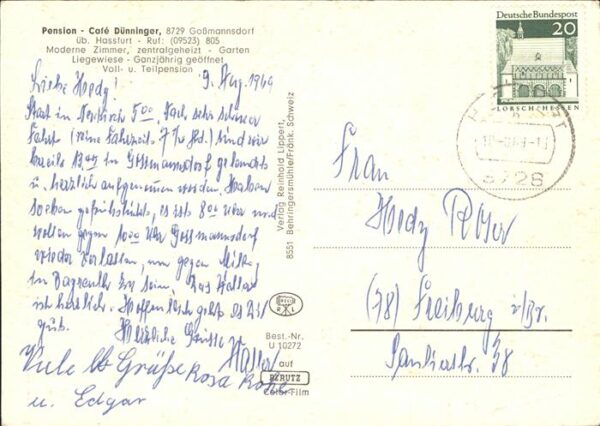 Pension - Café Dünninger, 8729 Goßmannsdorf
üb. Hassfurt - Ruf: (09523) 805
Moderne Zimmer, zentralgeheizt - Garten
Liegewiese - Ganzjährig geöffnet
Voll- u. Teilpension
9. Aug. 1969
Liebe Hedy!
Start in 5 00. Nach sehr schöner
Fahrt (reine Fahrzeit 7 ½ Std.) sind wir
bereits in Gossmannsdorf gelandet
u. herzlich aufgenommen worden. Haben
soeben gefrühstückt, es ist 8 00 Uhr und
wollen gegen 10 00 Uhr Gossmannsdorf
wieder verlassen, um gegen Mittag
in Bayreuth zu sein. Das Wetter
ist herrlich. Hoffentlich geht es Dir
gut.
Herzliche Grüsse
Viele lb Grüße Rosa
u. Edgar
Verlag Reinhold Lippert,
8551 Behringersmühle/Fränk. Schweiz
Best.-Nr.
U 10272
auf
PERUTZ
Color-Film
Deutsche Bundespost
20
LORSCH/HESSEN
8728
Frau
Hedy
(78) Freiburg i/Br.
38